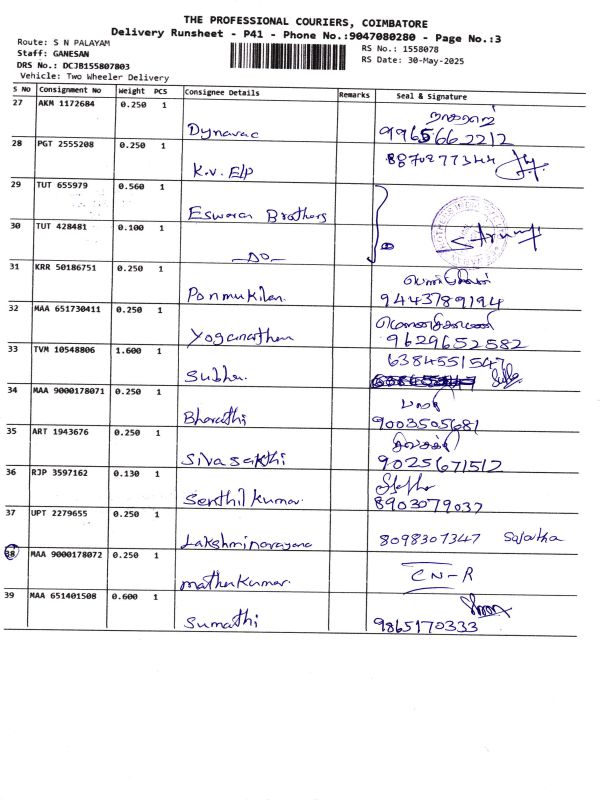 THE PROFESSIONAL COURIERS, COIMBATORE
Delivery Runsheet - P41 - Phone No.:9047080280 - Page No.:3
Route: S N PALAYAM
Staff: GANESAN
DRS No.: DCJB155807803
Vehicle: Two Wheeler Delivery
RS No.: 1558078
RS Date: 30-May-2025
S No Consignment No Weight PCS Consignee Details Remarks Seal & Signature
27 AKM 1172684 0.250 1
Dynavac 9965662212
28 PGT 2555208 0.250 1
K.V. E/P 8870277344
29 TUT 655979 0.560 1
Eswaran Brothers
30 TUT 428481 0.100 1
-DO-
31 KRR 50186751 0.250 1
Ponmukilan 9443789194
32 MAA 651730411 0.250 1
Yoganathan 9629652582
33 TVM 10548806 1.600 1 6384551547
Subha.
34 MAA 9000178071 0.250 1
Bharathi 9003505681
35 ART 1943676 0.250 1
Sivasakthi 9025671512
36 RJP 3597162 0.130 1
Senthil Kumar 8903079037
37 UPT 2279655 0.250 1
Lakshminarayana 8098307347 Sujatha
38 MAA 9000178072 0.250 1
CN-R
39 MAA 651401508 0.600 1
Sumathi 9865170333